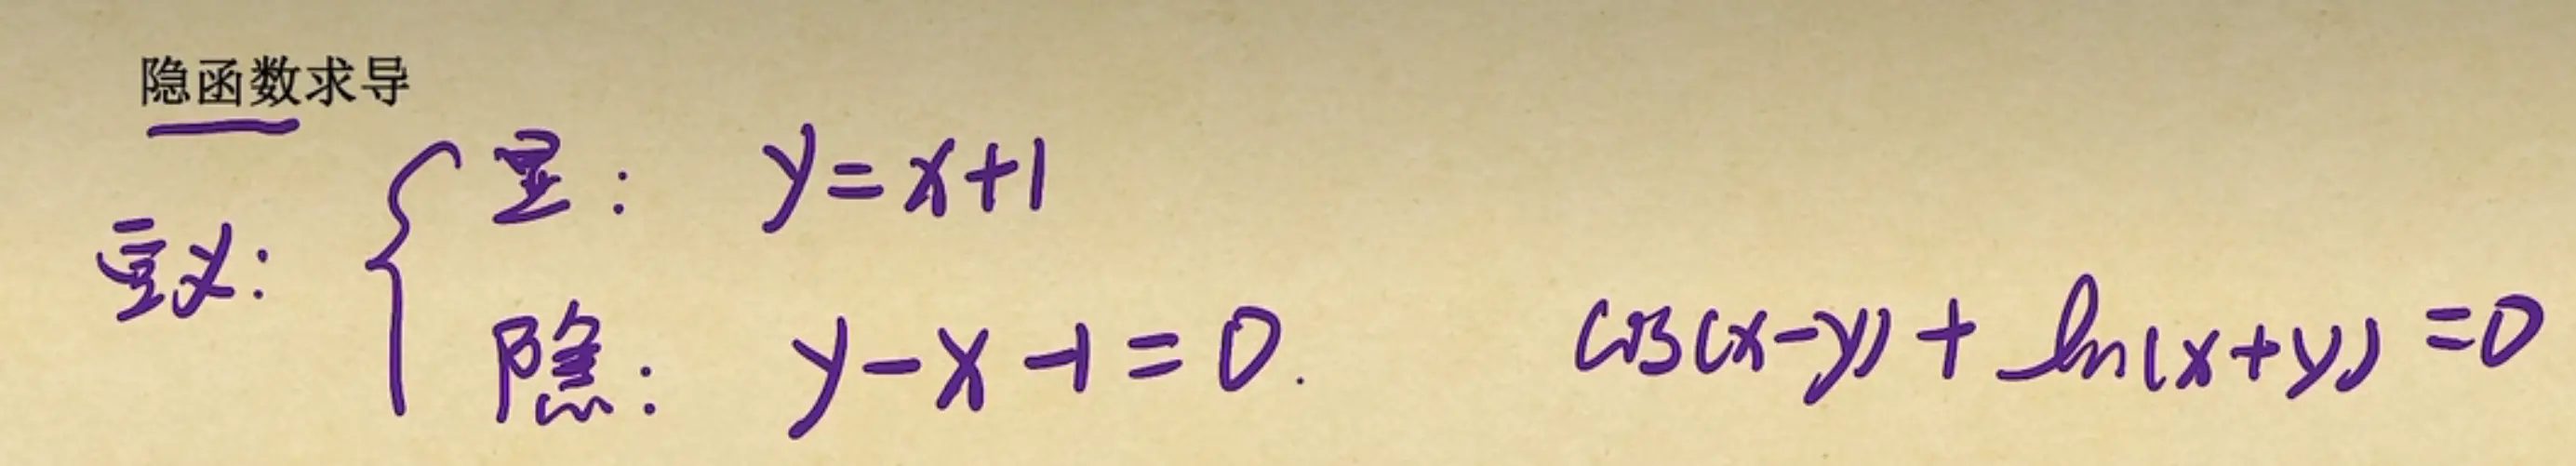 隐函数求导
定义:
显: y=x+1
隐: y-x-1=0.
cos(x-y)+ln(x+y)=0